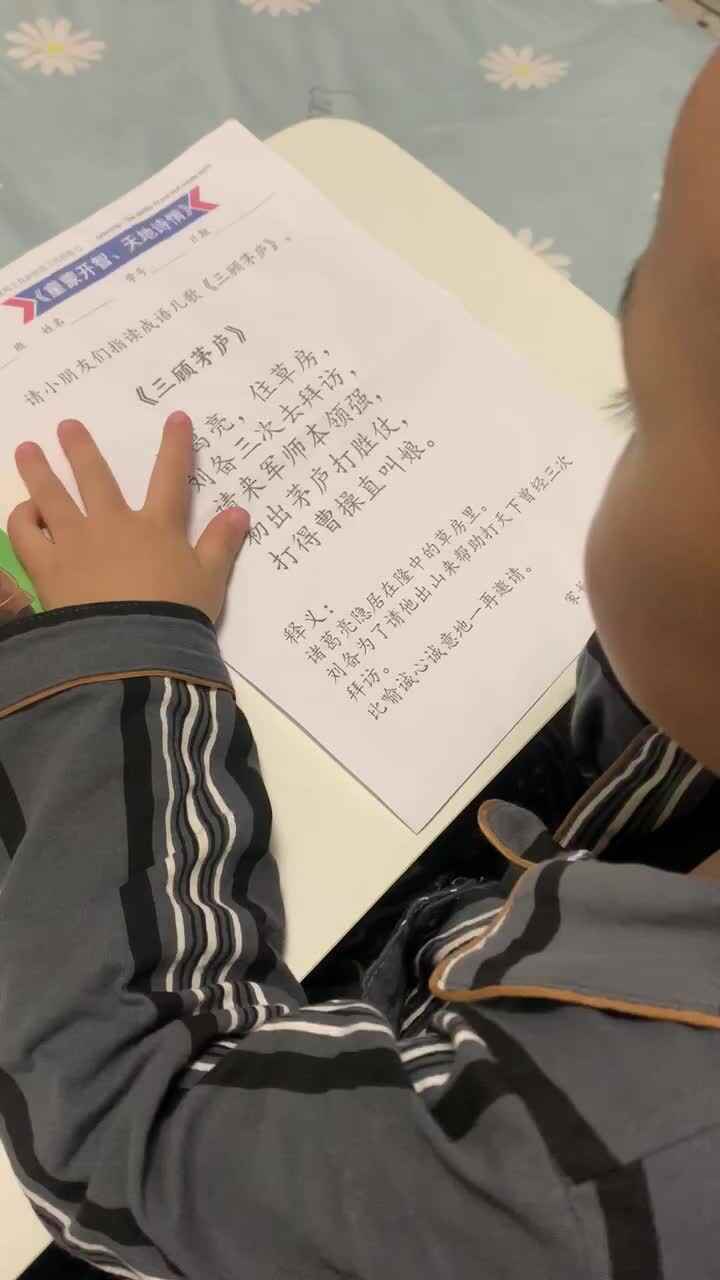 《童蒙开智、天地诗情》
班 姓名 学号 日期
请小朋友们指读成语儿歌《三顾茅庐》。
《三顾茅庐》
葛亮，住草房，
刘备三次去拜访，
请来军师本领强，
初出茅庐打胜仗，
打得曹操直叫娘。
释义：
诸葛亮隐居在隆中的草房里。
刘备为了请他出山来帮助打天下曾经三次
拜访。
比喻诚心诚意地一再邀请。
家长